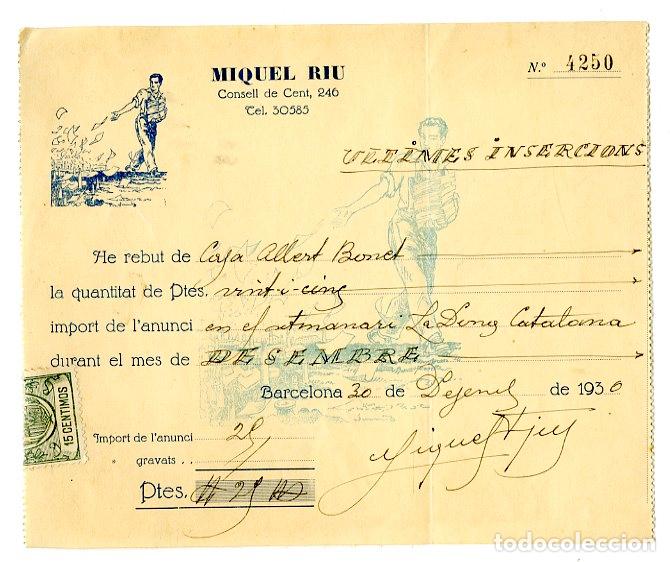 MIQUEL RIU
Consell de Cent, 246
Tel. 30585
N.º 4250
ULTIMES INSERCIONS
He rebut de Casa Albert Bonet
la quantitat de Ptes. vint-i-cinq
import de l'anunci en el setmanari La Dona Catalana
durant el mes de DESEMBRE
Barcelona 30 de de 1930
15 CENTIMOS
Import de l'anunci 25
" gravats
Ptes. # 25 #
Miquel Riu
todocoleccion